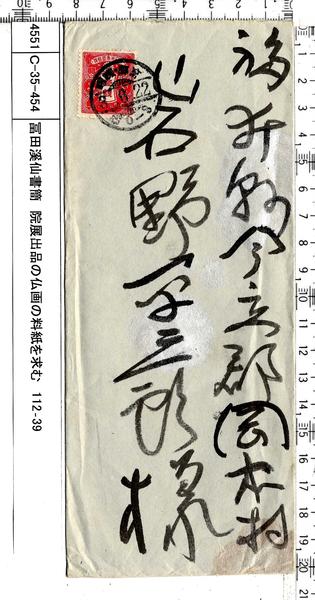 福井縣今立郡岡本村
岩野平三郎様
4551 C-35-454 冨田溪仙書簡 院展出品の仏画の料紙を求む 112-39